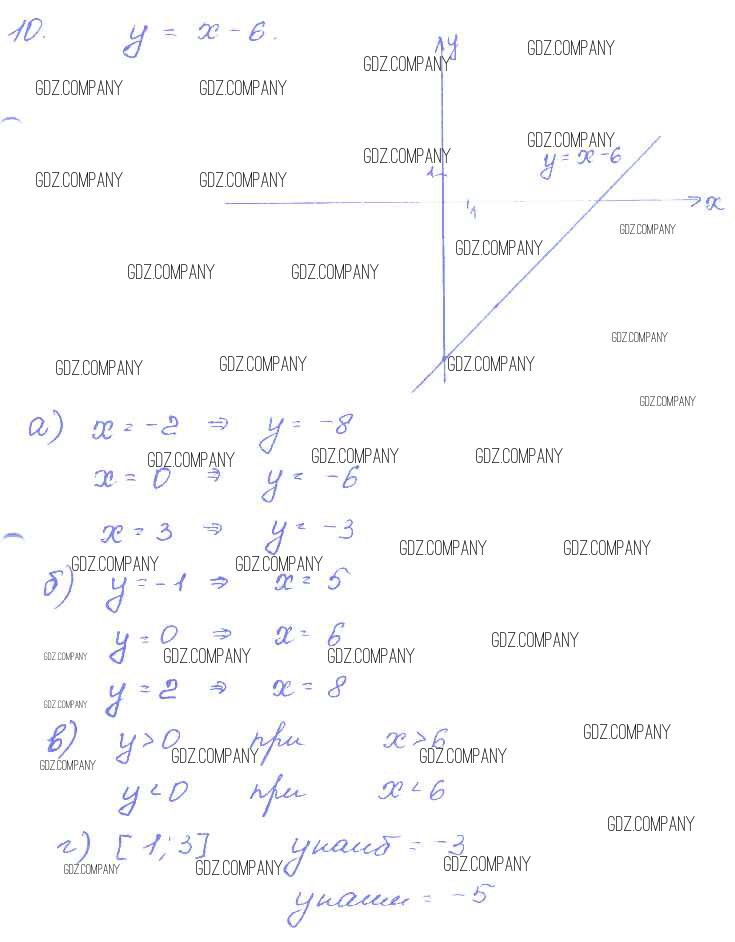 10. y = x - 6.
y
GDZ.COMPANY
GDZ.COMPANY
GDZ.COMPANY GDZ.COMPANY
GDZ.COMPANY
GDZ.COMPANY
y = x - 6
GDZ.COMPANY GDZ.COMPANY
1
x
1
GDZ.COMPANY
GDZ.COMPANY
GDZ.COMPANY GDZ.COMPANY
GDZ.COMPANY
GDZ.COMPANY GDZ.COMPANY GDZ.COMPANY
GDZ.COMPANY
а) x = -2 ⇒ y = -8
GDZ.COMPANY GDZ.COMPANY GDZ.COMPANY
x = 0 ⇒ y = -6
x = 3 ⇒ y = -3
GDZ.COMPANY GDZ.COMPANY
GDZ.COMPANY GDZ.COMPANY
б) y = -1 ⇒ x = 5
y = 0 ⇒ x = 6
GDZ.COMPANY
GDZ.COMPANY GDZ.COMPANY GDZ.COMPANY
y = 2 ⇒ x = 8
GDZ.COMPANY
GDZ.COMPANY
в) y > 0 при x > 6
GDZ.COMPANY GDZ.COMPANY GDZ.COMPANY
y < 0 при x < 6
GDZ.COMPANY
г) [1; 3] yнаиб = -3
GDZ.COMPANY GDZ.COMPANY GDZ.COMPANY
yнаим = -5